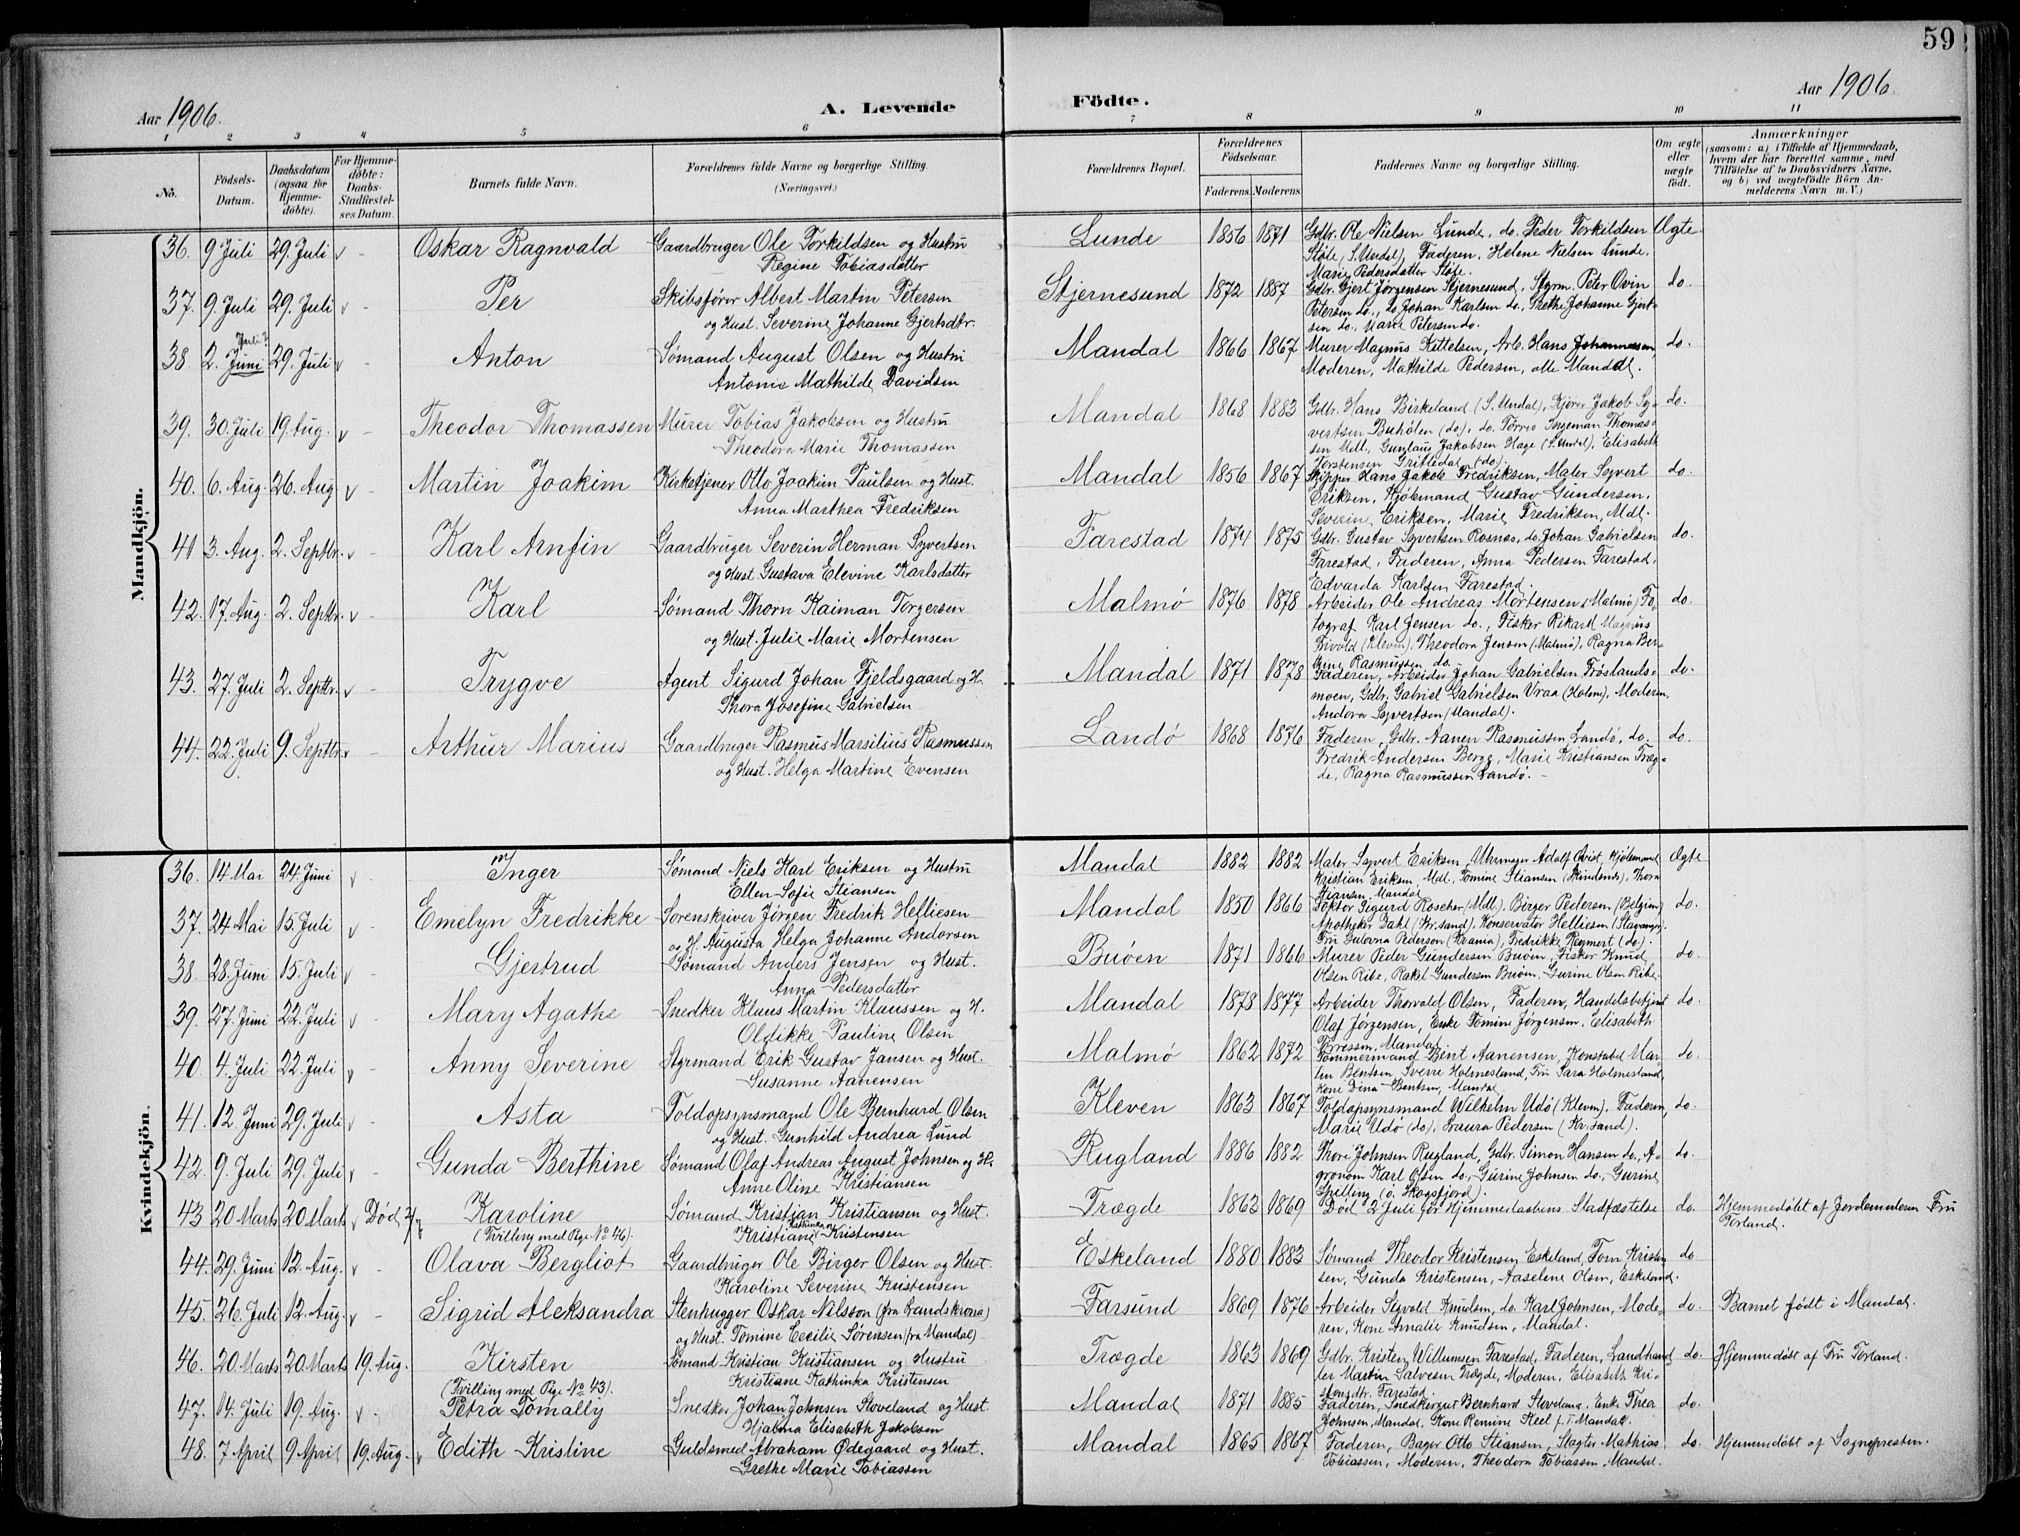 59
Aar 1906.
A. Levende Födte.
Aar 1906.
1 2 3 4 5 6 7 8 9 10 11
No.
Födsels-Datum.
Daabsdatum (ogsaa for Hjemmedöbte).
For Hjemmedöbte: Daabs-Stadfæstelses Datum.
Barnets fulde Navn.
Forældrenes fulde Navne og borgerlige Stilling. (Næringsvei.)
Forældrenes Bopæl.
Forældrenes Födselsaar.
Faderens. Moderens.
Faddernes Navne og borgerlige Stilling.
Om ægte eller uægte födt.
Anmærkninger (saasom: a) i Tilfælde af Hjemmedaab, hvem der har forrettet samme, med Tilföielse af to Daabsvidners Navne, og b) ved uægtefödte Börn Anmelderens Navn m. V.)
Mandkjön.
36. 9 Juli 29. Juli Oskar Ragnvald Gaardbruger Ole Torkildsen og Hustru Lunde 1856 1871 Gdbr. Ole Nielsen Lunde, do. Peder Torkildsen Ægte
Regine Tobiasdatter Støle (S. Undal), Faderen, Helene Nielsen Lunde,
Marie Pedersdatter Støle.
37. 9 Juli 29. Juli Per Skibsfører Albert Martin Petersen Stjernesund 1872 1887 Gdbr. Gjert Jörgensen Stjernesund, Styrm. Peter Ovin do.
og Hust. Severine Johanne Gjertsdtr. Petersen do., do. Johan Karlsen do., Grethe Johanne Gjertsen do., Marie Petersen do.
Juli?
38 2. Juni 29. Juli Anton Sømand August Olsen og Hustru Mandal 1866 1867 Murer Magnus Kittelsen, Arb. Hans Johannessen, do.
Antonie Mathilde Davidsen Moderen, Mathilde Pedersen, alle Mandal.
39. 30. Juli 19. Aug. Theodor Thomassen Murer Tobias Jakobsen og Hustru Mandal 1868 1883 Gdbr. Hans Birkeland (S. Undal), Kjører Jakob Sy- do.
Theodora Marie Thomassen vertsen Buhölen (do.), do. Törres Ingeman Thomassen Mdl., Gunlaug Jakobsen Hage (S. Undal), Elisabeth
Torstensen Grittedal (do).
40. 6. Aug. 26. Aug Martin Joakim Kirketjener Otto Joakim Paulsen og Hust. Mandal 1856 1867 Skipper Hans Jakob Fredriksen, Maler Syvert do.
Anna Marthea Fredriksen Eriksen, Kjöbmand Gustav Gundersen,
Severine Eriksen, Marie Fredriksen, Mdl.
41 3. Aug. 2. Septbr. Karl Arnfin Gaardbruger Severin Herman Syvertsen Farestad 1874 1875 Gdbr. Gustav Syvertsen Rosnes, do. Johan Gabrielsen do.
og Hust. Gustava Elevine Karlsdatter Farestad, Faderen, Anna Pedersen Farestad,
Edvarda Karlsen Farestad.
42. 17. Aug. 2. Septbr. Karl Sømand Thorn Kaiman Torgersen Malmø 1876 1878 Arbeider Ole Andreas Mortensen (Malmø) Fo- do.
og Hust. Julie Marie Mortensen tograf Karl Jensen do., Fisker Rikard Magnus
Frivold (Kleven), Theodora Jensen (Malmø), Ragna Ber-
gine Rasmussen do.
43. 27. Juli 2. Septbr. Trygve Agent Sigurd Johan Fjeldsgaard og H. Mandal 1871 1878 Faderen, Arbeider Johan Gabrielsen Frøslands- do.
Thora Josefine Gabrielsen moen, Gdbr. Gabriel Gabrielsen Vraa (Holm), Moderen,
Andora Syvertsen (Mandal).
44. 22. Juli 9. Septbr. Arthur Marius Gaardbruger Rasmus Marsilius Rasmussen Landø 1868 1876 Faderen, Gdbr. Aanen Rasmussen Landø, do. do.
og Hust. Helga Martine Evensen Fredrik Andersen Berge, Marie Kristiansen Træg-
de, Ragna Rasmussen Landø.
Kvindekjön.
36. 14 Mai 24. Juni Inger Sømand Niels Karl Eriksen og Hustru Mandal 1882 1882 Maler Syvert Eriksen, Uhrmager Adolf Qvist, Kjöbmand Ægte
Ellen Sofie Stiansen Kristian Eriksen Mdl. Tomine Stiansen (Skindsnes), Thora
Stiansen Mandal
37. 24 Mai 15. Juli Emelyn Fredrikke Sorenskriver Jørgen Fredrik Helliesen Mandal 1850 1866 Doktor Sigurd Rosehn (Mdl). Birger Pedersen (Belgien) do.
og H. Augusta Helga Johanne Andersen Apotheker Dahl (Kr.sand), Konservator Helliesen (Stavanger),
Fru Gulorna Pederson (Krania), Fredrikke Reymert (do).
38. 28. Juni 15. Juli Gjertrud Sømand Anders Jensen og Hust. Buøen 1871 1866 Murer Peder Gundersen Buøen, Fisker Knud do.
Anna Pedersdatter Olsen Ribe, Rakel Gundersen Buøen, Gurine Olsen Ribe.
39. 27. Juni 22. Juli Mary Agathe Snedker Klaus Martin Klaussen og H. Mandal 1878 1877 Arbeider Thorvald Olsen, Faderen, Handelsbetjent do.
Oldikke Pauline Olsen Olaf Jørgensen, Enke Tomine Jørgensen, Elisabeth
Torressen, Mandal
40. 4. Juli 22. Juli Anny Severine Styrmand Erik Gustav Jansen og Hust. Malmø 1862 1872 Tømmermand Bent Aanensen, Konstabel Mar- do.
Susanne Aanensen tin Bentsen, Sverre Holmesland, Fru Sara Holmesland,
Kone Dina Bentsen, Mandal
41. 12 Juni 29. Juli Asta Toldopsynsmand Ole Bernhard Olsen Kleven 1863 1867 Toldopsynsmand Wilhelm Udö (Kleven), Faderen, do.
og Hust. Gunhild Andrea Lund Marie Udö (do), Laura Pedersen (Kr.sand).
42. 9. Juli 29. Juli Gunda Berthine Sømand Olaf Andreas August Johnsen og H. Rugland 1886 1882 Thore Johnsen Rugland, Gdbr. Simon Hansen do., A- do.
Anne Oline Kristiansen gronom Karl Olsen do., Gurine Johnsen do., Gurine
Spilling (ö. Skogsfjord).
43 20 Marts 20 Marts Død 2/7 Karoline Sømand Kristian Kristiansen og Hust. Trægde 1863 1869 Død 2 Juli før Hjemmedaabens Stadfæstelse do. Hjemmedøbt af Jordemoderen Fru
(Tvilling med Pige No 46). Kristiane Kathinka Kristensen Torland.
44. 29. Juni 12. Aug. Olava Bergliot Gaardbruger Ole Birger Olsen og Hust. Eskeland 1880 1883 Sømand Theodor Kristensen Eskeland, Tom Kristen- do
Karoline Severine Kristensen sen, Gunda Kristensen, Aaselene Olsen, Eskeland.
45. 26. Juli 12. Aug. Sigrid Aleksandra Stenhugger Oskar Nilsson (fra Landskrona) Farsund 1869 1876 Arbeider Sigvald Knudsen, do. Karl Johnsen, Mode- do. Barnet født i Mandal.
og Hust. Tomine Cecilie Sørensen (fra Mandal) ren, Kone Amalie Knudsen, Mandal.
46. 20 Marts 20 Marts 19 Aug. Kirsten Sømand Kristian Kristiansen og Hustru Trægde 1863 1869 Gdbr. Kristen Willumsen Farestad, Faderen, Landhand- do. Hjemmedøbt af Fru Torland.
(Tvilling med Pige No 43). Kristiane Kathinka Kristensen ler Martin Salvesen Trægde, Moderen, Elisabeth Kri-
stensdtr. Farestad
47. 14. Juli 19. Aug. Petra Tomally Snedker Johan Johnsen Sloveland og Hust. Mandal 1871 1885 Faderen, Snedkergut Bernhard Sloveland, Enke Thea do.
Hjalma Elisabeth Jakobsen Johnsen, Mandal, Kone Remine Keel p.T. Mandal.
48. 7 April 9 April 19. Aug. Edith Kristine Guldsmed Abraham Ødegaard og Hust. Mandal 1865 1867 Faderen, Bager Otto Stiansen, Slagter Mathias do. Hjemmedøbt af Sognepresten.
Grethe Marie Tobiassen Tobiassen, Moderen, Theodora Tobiassen, Mandal.